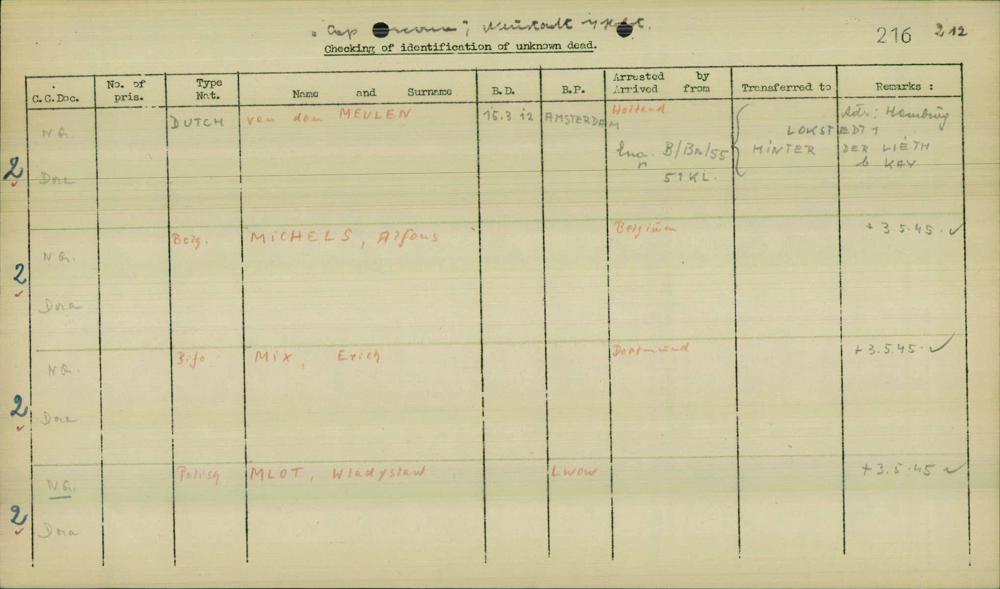 "Cap Arcona"; Neustadt i/Holst.
216 212
Checking of identification of unknown dead.
C.C.Doc. No. of pris. Type Nat. Name and Surname B.D. B.P. Arrested by Arrived from Transferred to Remarks :
2 N G. Dora DUTCH van den MEULEN 15.3.12 AMSTERDAM Holland Adr.: Hamburg
LOKSTEDT 1
B/Bn/55 HINTER DER LIETH
51 KL. b KAY
2 N G. Dora Belg. MICHELS, Alfons Belgium + 3.5.45. ✓
2 N G. Dora Bifo MIX, Erich Dortmund + 3.5.45. ✓
2 N G. Dora Polish MLOT, Wladyslaw LWOW + 3.5.45 ✓